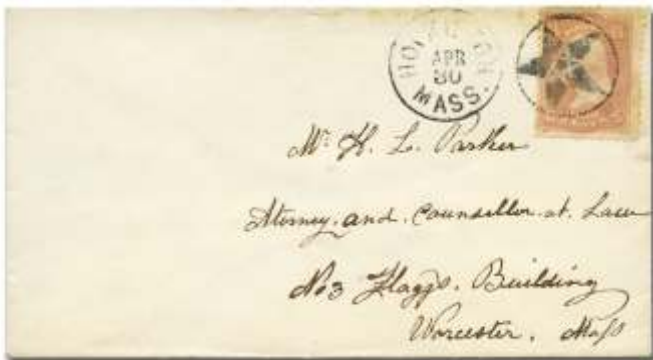 APR
30
MASS.
Mr. H. L. Parker
Attorney. and. Counsellor. at. Law
No 3 Flaggs. Building
Worcester. Mass